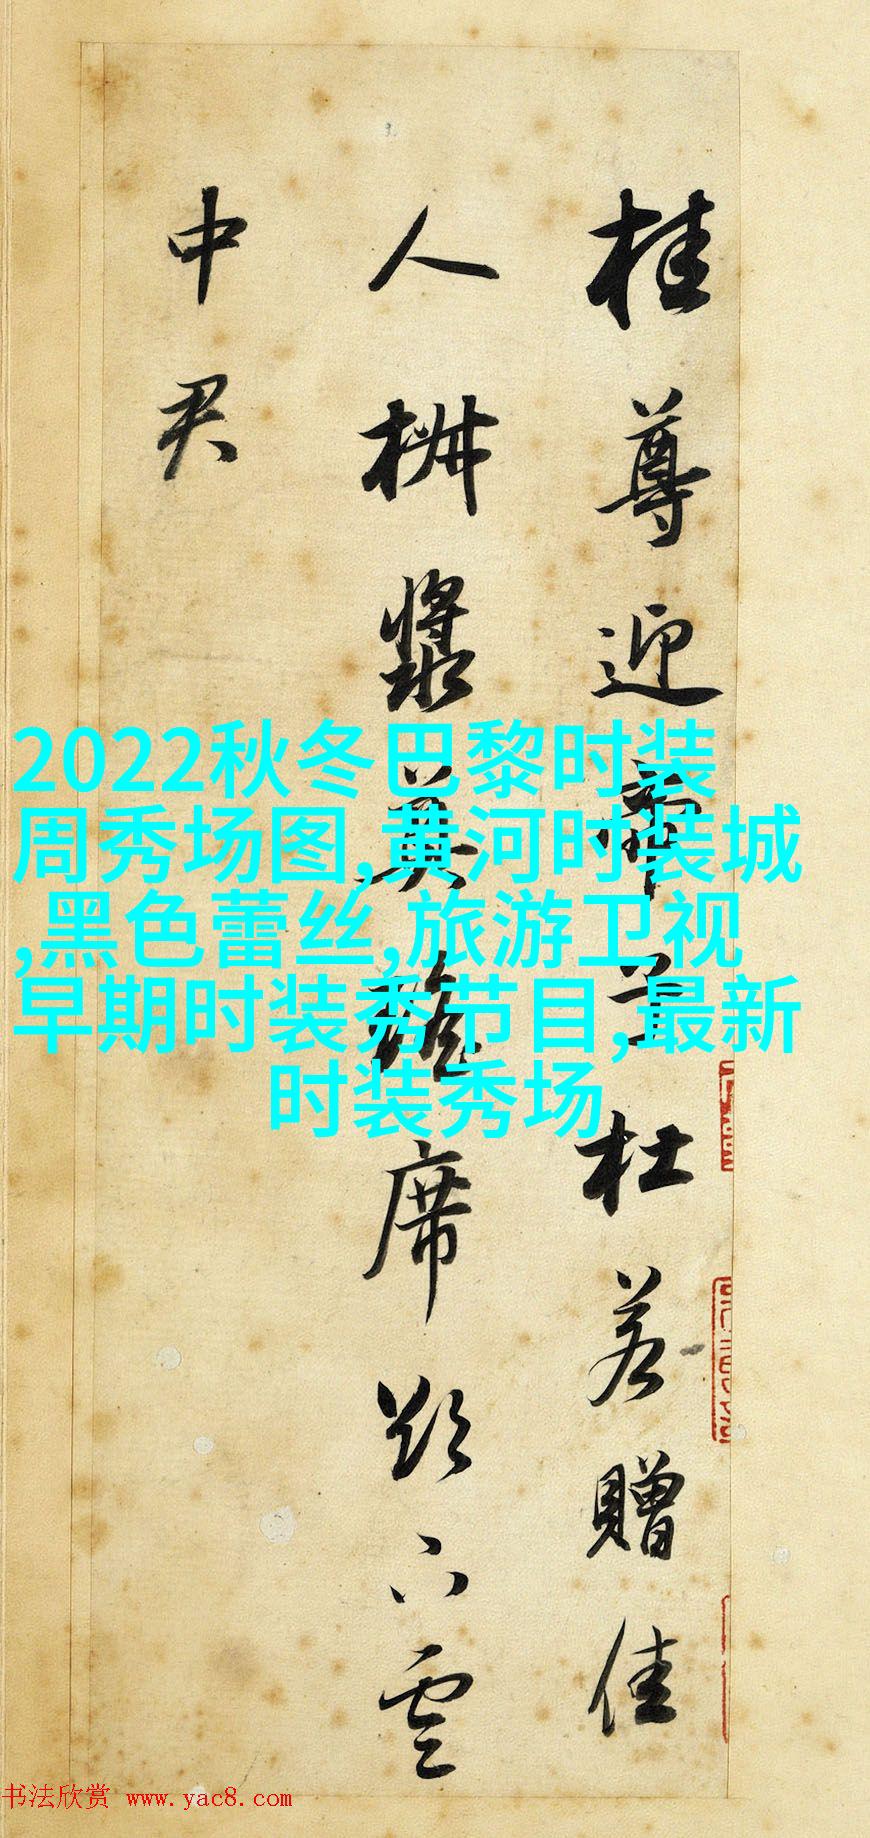 桂尊迎帝子杜若贈佳
人椒漿奠瑤席欲下雲
中君
2022秋冬巴黎时装
周秀场图,黄河时装城
,黑色蕾丝,旅游卫视
早期时装秀节目,最新
时装秀场
书法欣赏 www.yac8.com